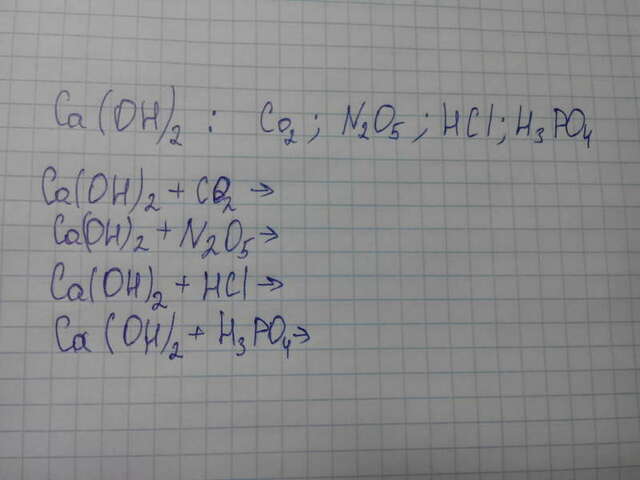 Ca(OH)2 : CO2; N2O5; HCl; H3PO4
Ca(OH)2 + CO2 →
Ca(OH)2 + N2O5 →
Ca(OH)2 + HCl →
Ca(OH)2 + H3PO4 →